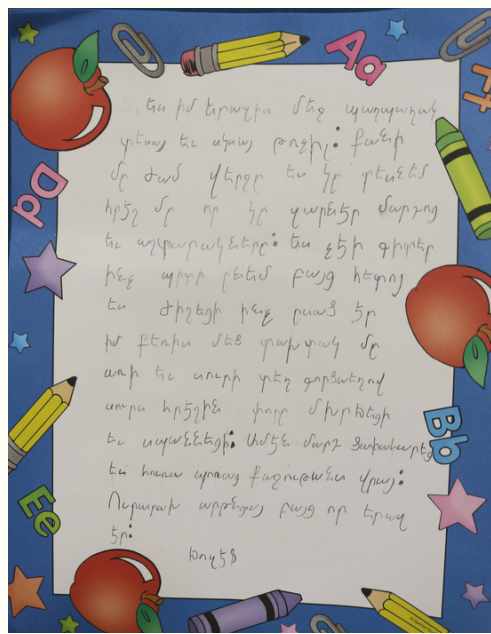 Ես իմ երազիս մեջ պաղպաղակ
տեսայ եւ սկսայ թռչիլ: Քանի
մը ժամ վերջը ես կը տեսնեմ
հրէշ մը որ կը զարնէր մարդոց
եւ աղտարակները: Ես չէի գիտեր
ինչ պիտի ընեմ բայց հետոյ
ես յիշեցի ինչ ըսած էր
իմ քեռիս մեծ դախտակ մը
առի եւ սուրի տեղ գործածելով
սուրս հրէշին փորը մխրճեցի
եւ սպաննեցի: Ամէն մարդ ծափահարեց
եւ հոսաս քաջութեանս վրայ:
Ուրախ արթնցայ բայց որ երազ
էր:
Aa
Dd
Bb
Ee